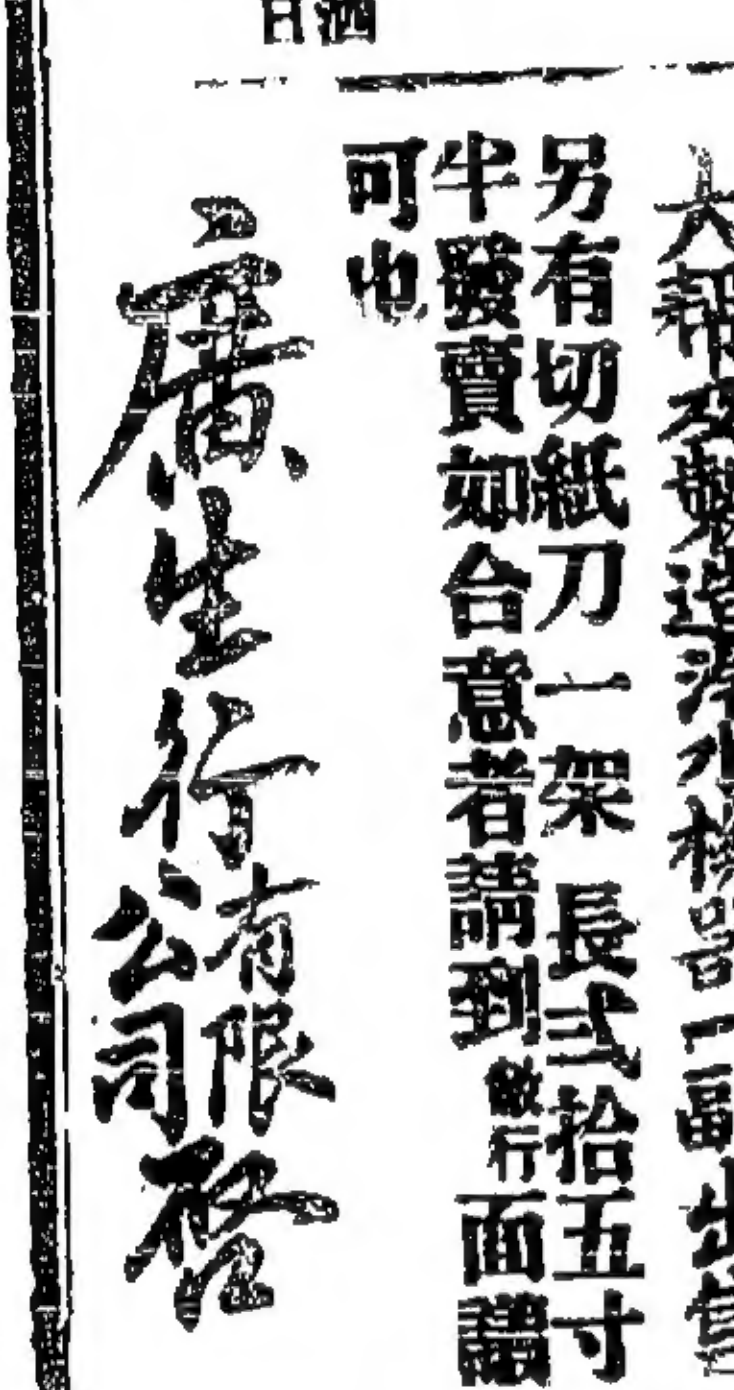 大帮及製造水機器一副出售
另有切紙刀一架 長弍拾五寸
半發賣如合意者請到敝行面議
可也
廣生行有限公司啓